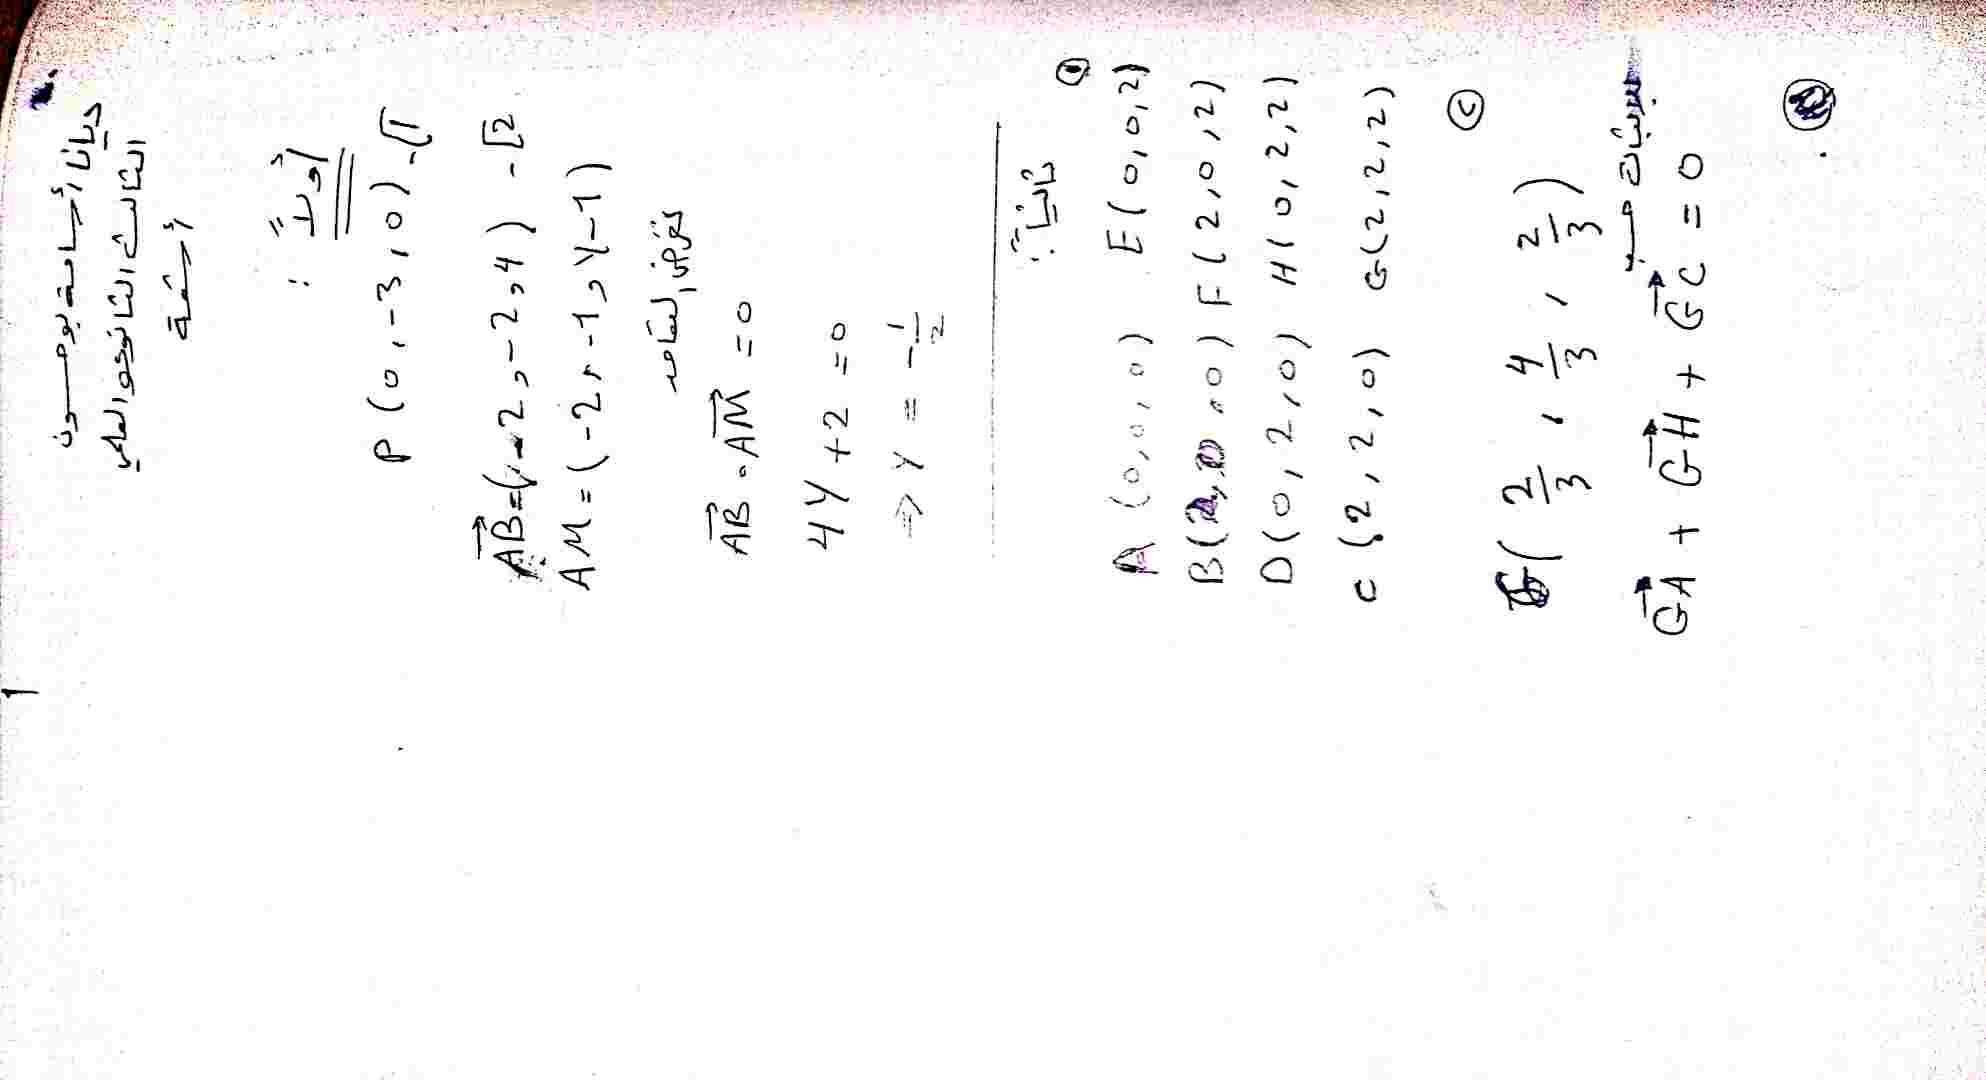 ديانا أسامة بوحسون
الثالث الثانوي العلمي
أشعة
أولاً :
P (0, -3, 0) -1
AB = (-2, -2, 4) -2
AM = (-2, -1, y-1)
نفرض التعامد
AB . AM = 0
4y + 2 = 0
=> y = -1/2
ثانياً :
1
A (0, 0, 0) E (0, 0, 2)
B (2, 0, 0) F (2, 0, 2)
D (0, 2, 0) H (0, 2, 2)
C (2, 2, 0) G (2, 2, 2)
2
G (2/3, 4/3, 2/3)
GA + GH + GC = 0